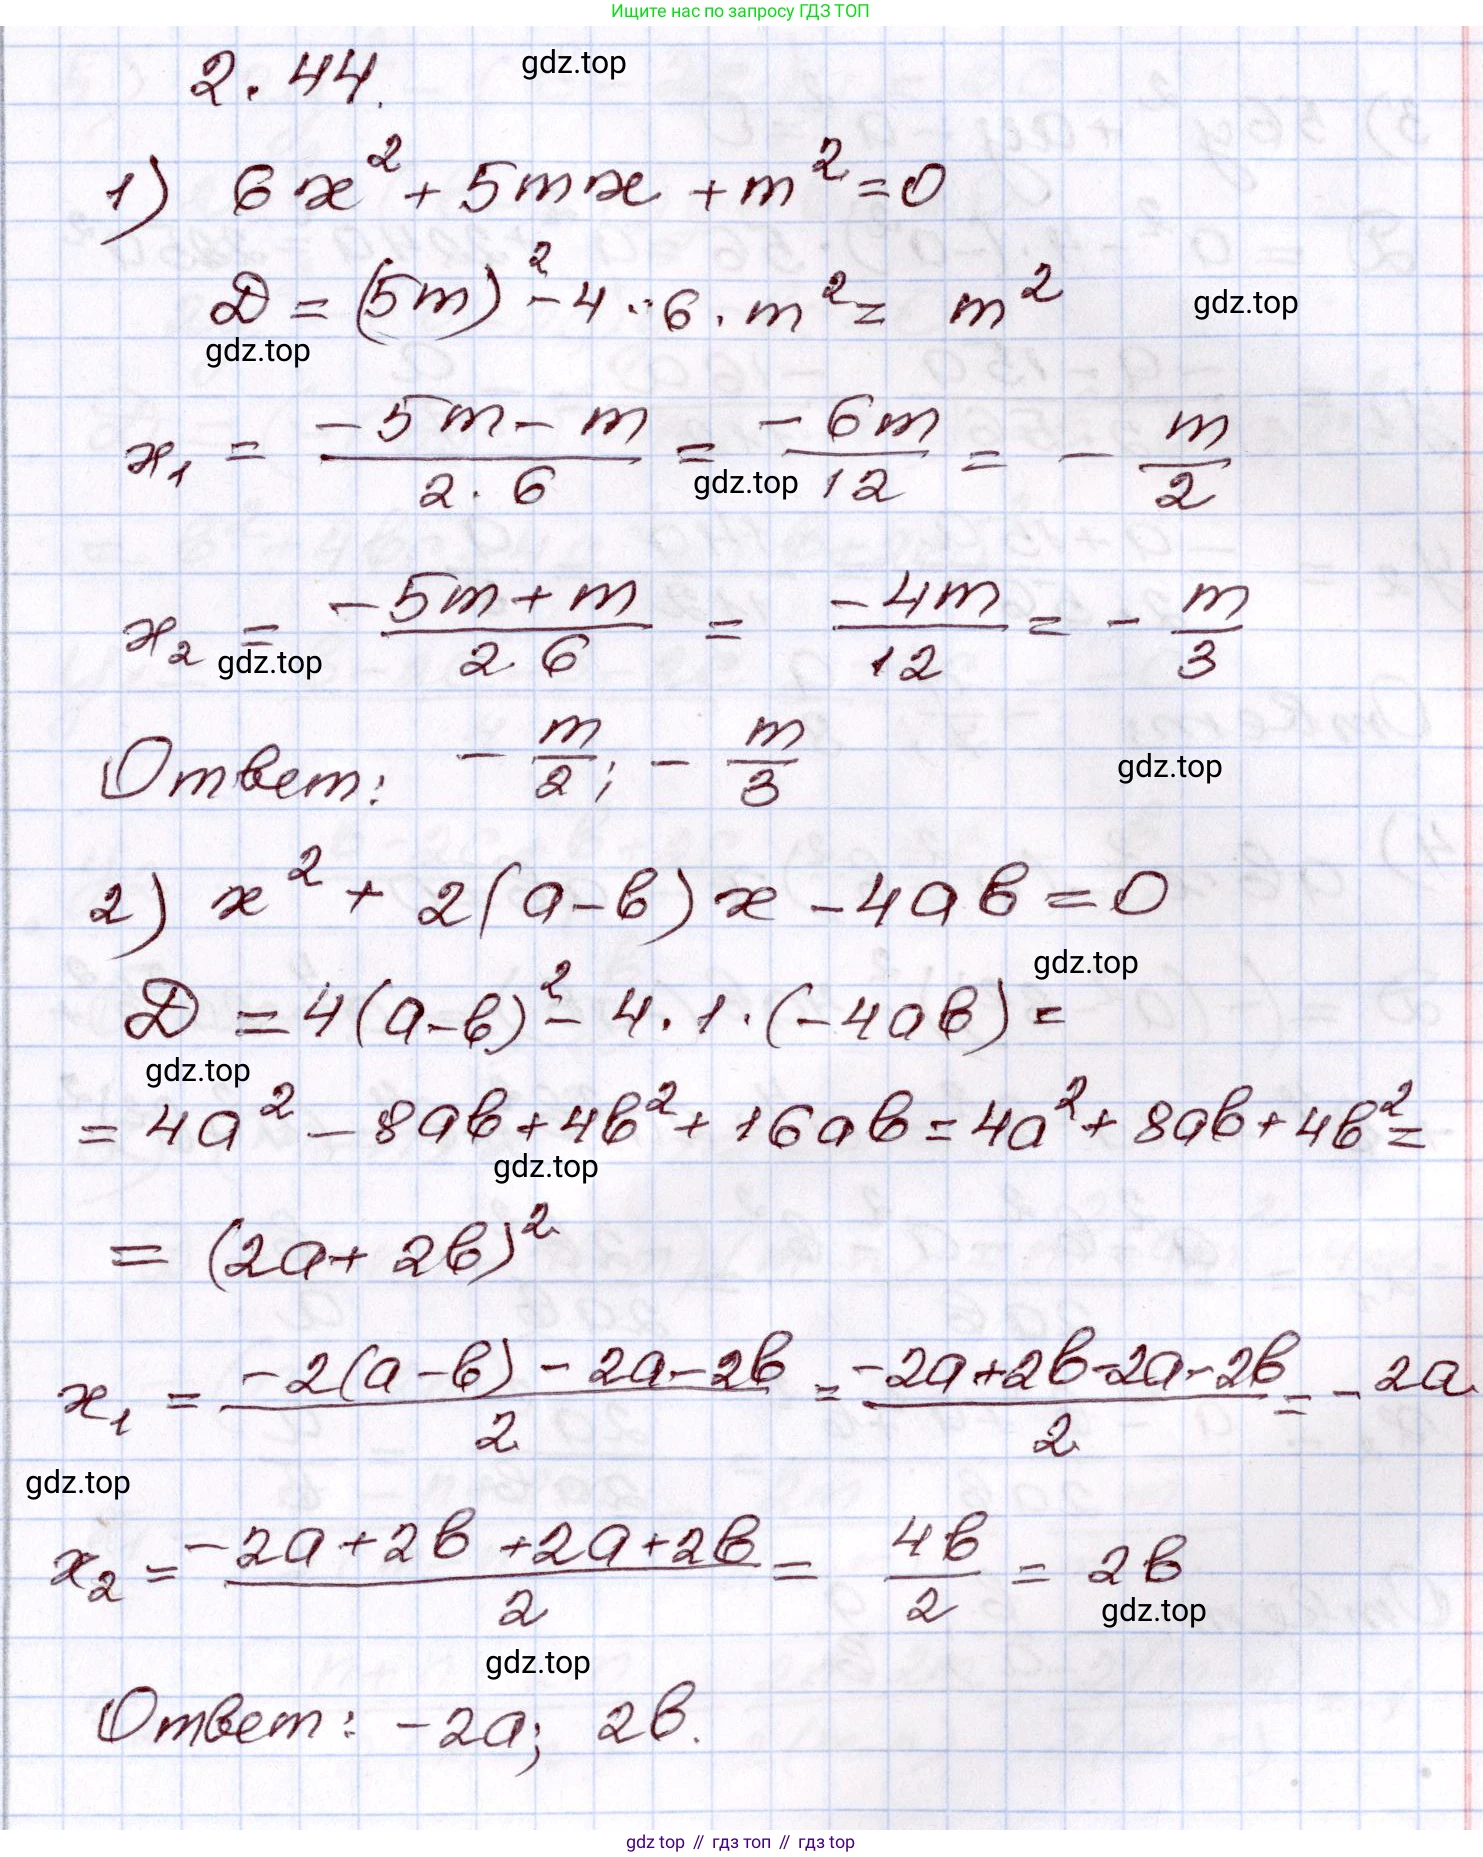 Ищите нас по запросу ГДЗ ТОП
2.44.
gdz.top
1) 6x² + 5mx + m² = 0
D = (5m)² - 4 · 6 · m² = m²
gdz.top
gdz.top
x₁ = (-5m - m)/(2 · 6) = (-6m)/12 = - m/2
gdz.top
x₂ = (-5m + m)/(2 · 6) = (-4m)/12 = - m/3
gdz.top
Ответ: - m/2; - m/3
gdz.top
2) x² + 2(a-b)x - 4ab = 0
gdz.top
D = 4(a-b)² - 4 · 1 · (-4ab) =
gdz.top
= 4a² - 8ab + 4b² + 16ab = 4a² + 8ab + 4b² =
gdz.top
= (2a + 2b)²
x₁ = (-2(a-b) - 2a - 2b)/2 = (-2a + 2b - 2a - 2b)/2 = -2a
gdz.top
x₂ = (-2a + 2b + 2a + 2b)/2 = 4b/2 = 2b
gdz.top
gdz.top
Ответ: -2a; 2b.
gdz top // гдз топ // gdz top